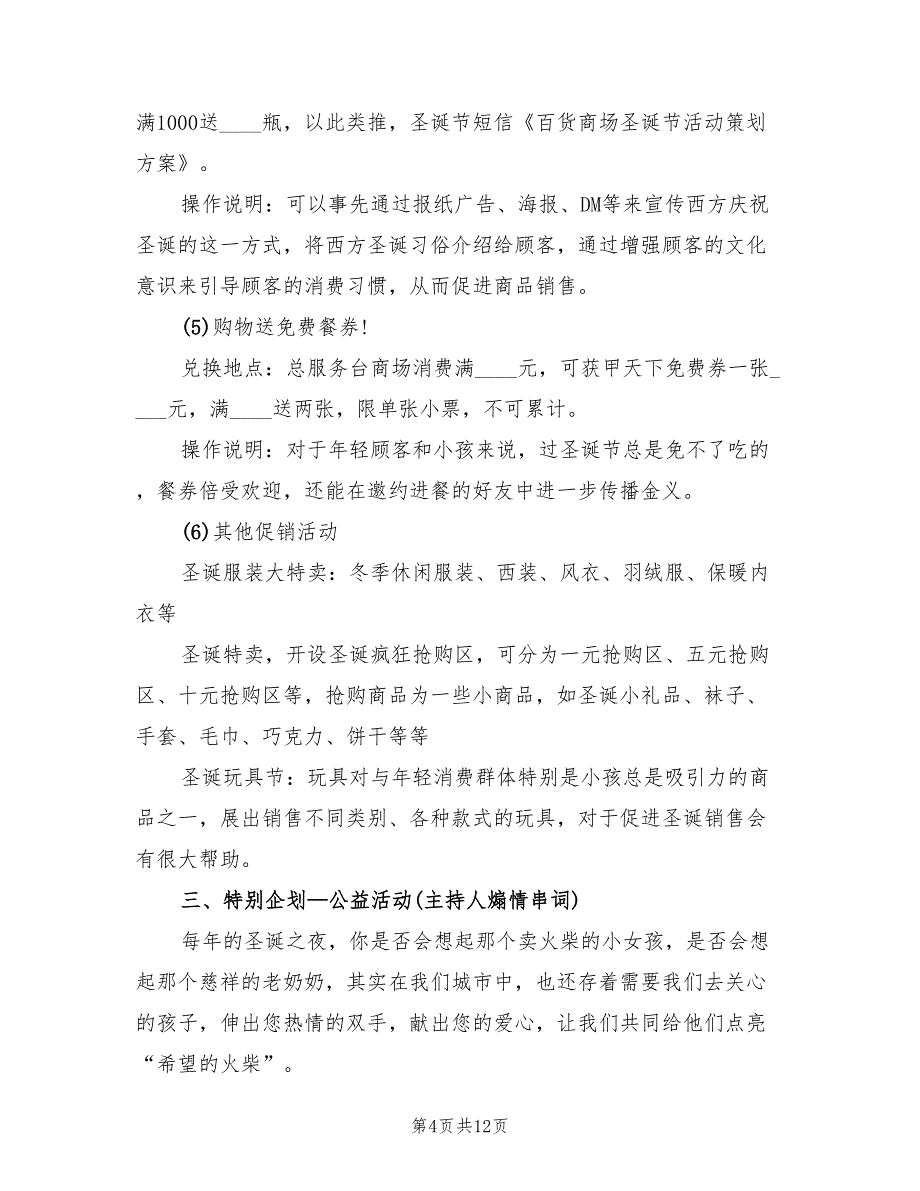 满1000送____瓶，以此类推，圣诞节短信《百货商场圣诞节活动策划
方案》。
操作说明：可以事先通过报纸广告、海报、DM等来宣传西方庆祝
圣诞的这一方式，将西方圣诞习俗介绍给顾客，通过增强顾客的文化
意识来引导顾客的消费习惯，从而促进商品销售。
(5)购物送免费餐券!
兑换地点：总服务台商场消费满____元，可获甲天下免费券一张_
___元，满____送两张，限单张小票，不可累计。
操作说明：对于年轻顾客和小孩来说，过圣诞节总是免不了吃的
，餐券倍受欢迎，还能在邀约进餐的好友中进一步传播金义。
(6)其他促销活动
圣诞服装大特卖：冬季休闲服装、西装、风衣、羽绒服、保暖内
衣等
圣诞特卖，开设圣诞疯狂抢购区，可分为一元抢购区、五元抢购
区、十元抢购区等，抢购商品为一些小商品，如圣诞小礼品、袜子、
手套、毛巾、巧克力、饼干等等
圣诞玩具节：玩具对与年轻消费群体特别是小孩总是吸引力的商
品之一，展出销售不同类别、各种款式的玩具，对于促进圣诞销售会
有很大帮助。
三、特别企划—公益活动(主持人煽情串词)
每年的圣诞之夜，你是否会想起那个卖火柴的小女孩，是否会想
起那个慈祥的老奶奶，其实在我们城市中，也还存着需要我们去关心
的孩子，伸出您热情的双手，献出您的爱心，让我们共同给他们点亮
“希望的火柴”。
第4页共12页